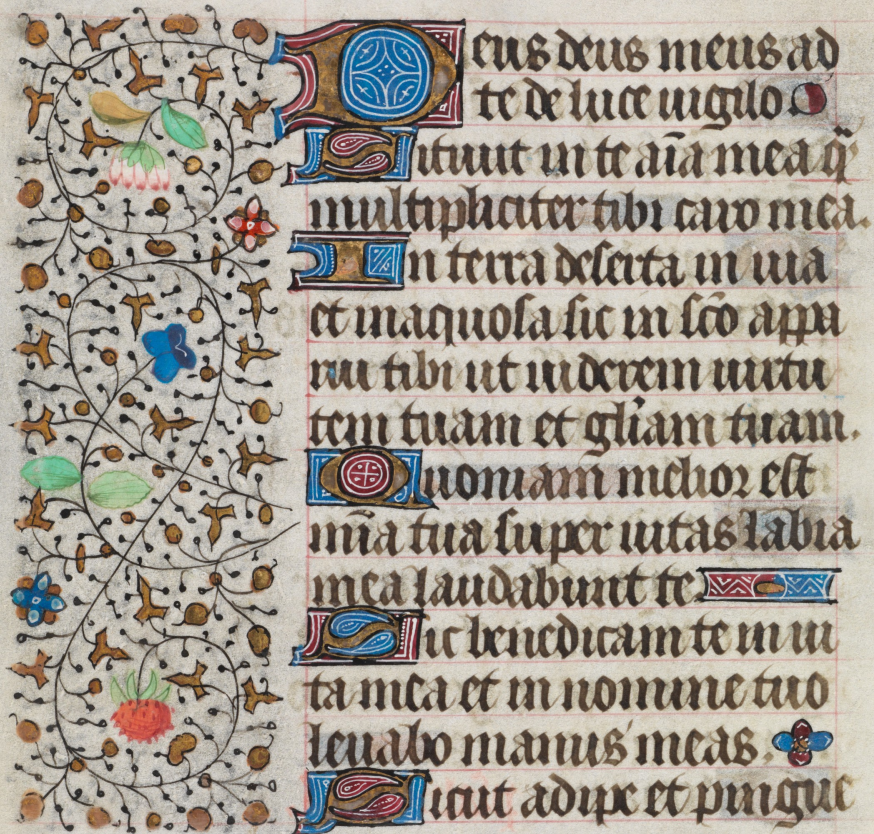 Deus deus meus ad
te de luce uigilo
Sitiuit in te aīa mea q̄
multipliciter tibi caro mea.
In terra deserta in uia
et inaquosa sic in sc̄o appa
rui tibi ut uiderem uirtu
tem tuam et gl̄iam tuam.
Quoniam melior est
mīa tua super uitas labia
mea laudabunt te.
Sic benedicam te in ui
ta mea et in nomine tuo
leuabo manus meas.
Sicut adipe et pingue